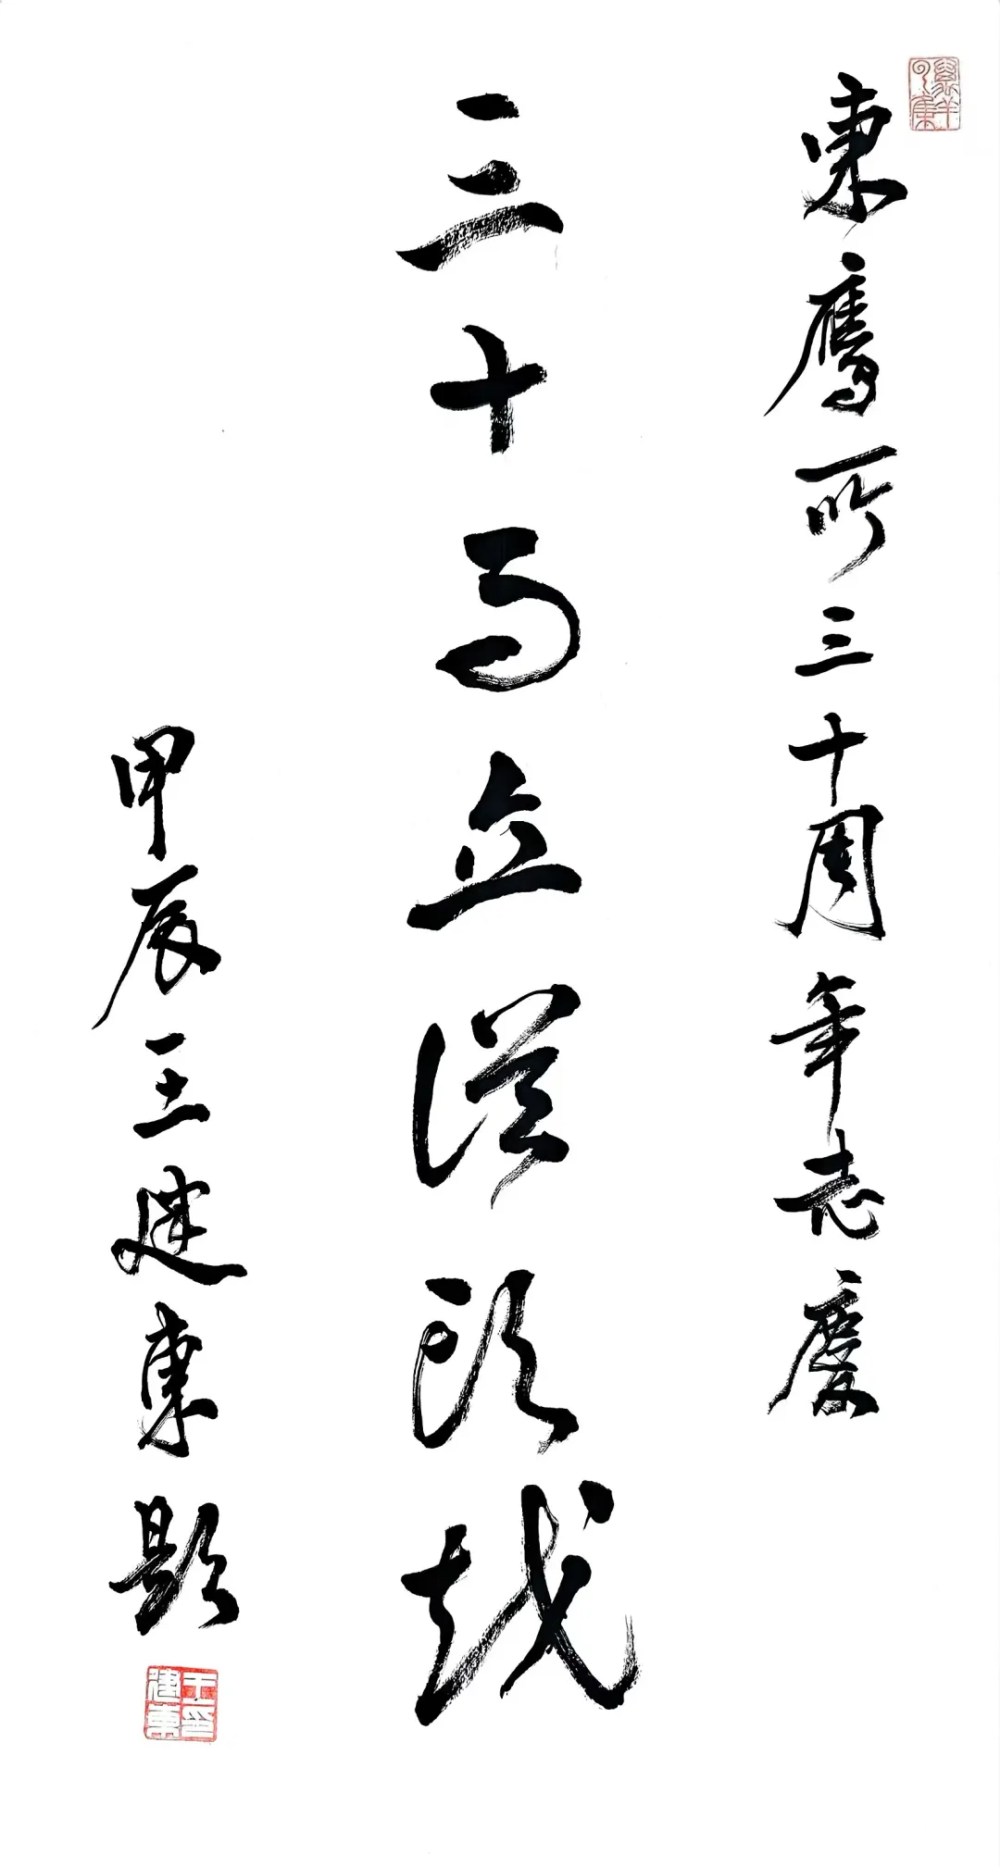 東鷹所三十周年志慶
三十而立從頭越
甲辰王建東題
王建東印